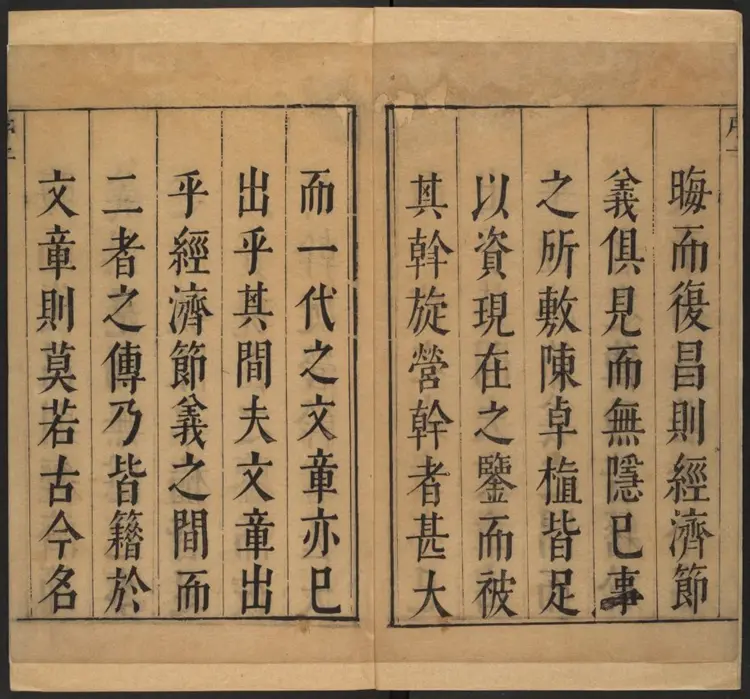 晦而復昌則經濟節
義俱見而無隱已事
之所敷陳卓植皆足
以資現在之鑒而被
其幹旋營幹者甚大
而一代之文章亦已
出乎其間夫文章出
乎經濟節義之間而
二者之傳乃皆籍於
文章則莫若古今名